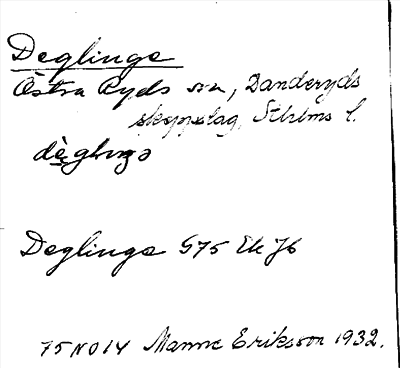 Deglinge
Östra Ryds sn, Danderyds
skeppslag, Sthlms l.
Deglinge G75 Ek J6
75 NO 14 Manne Eriksson 1932.